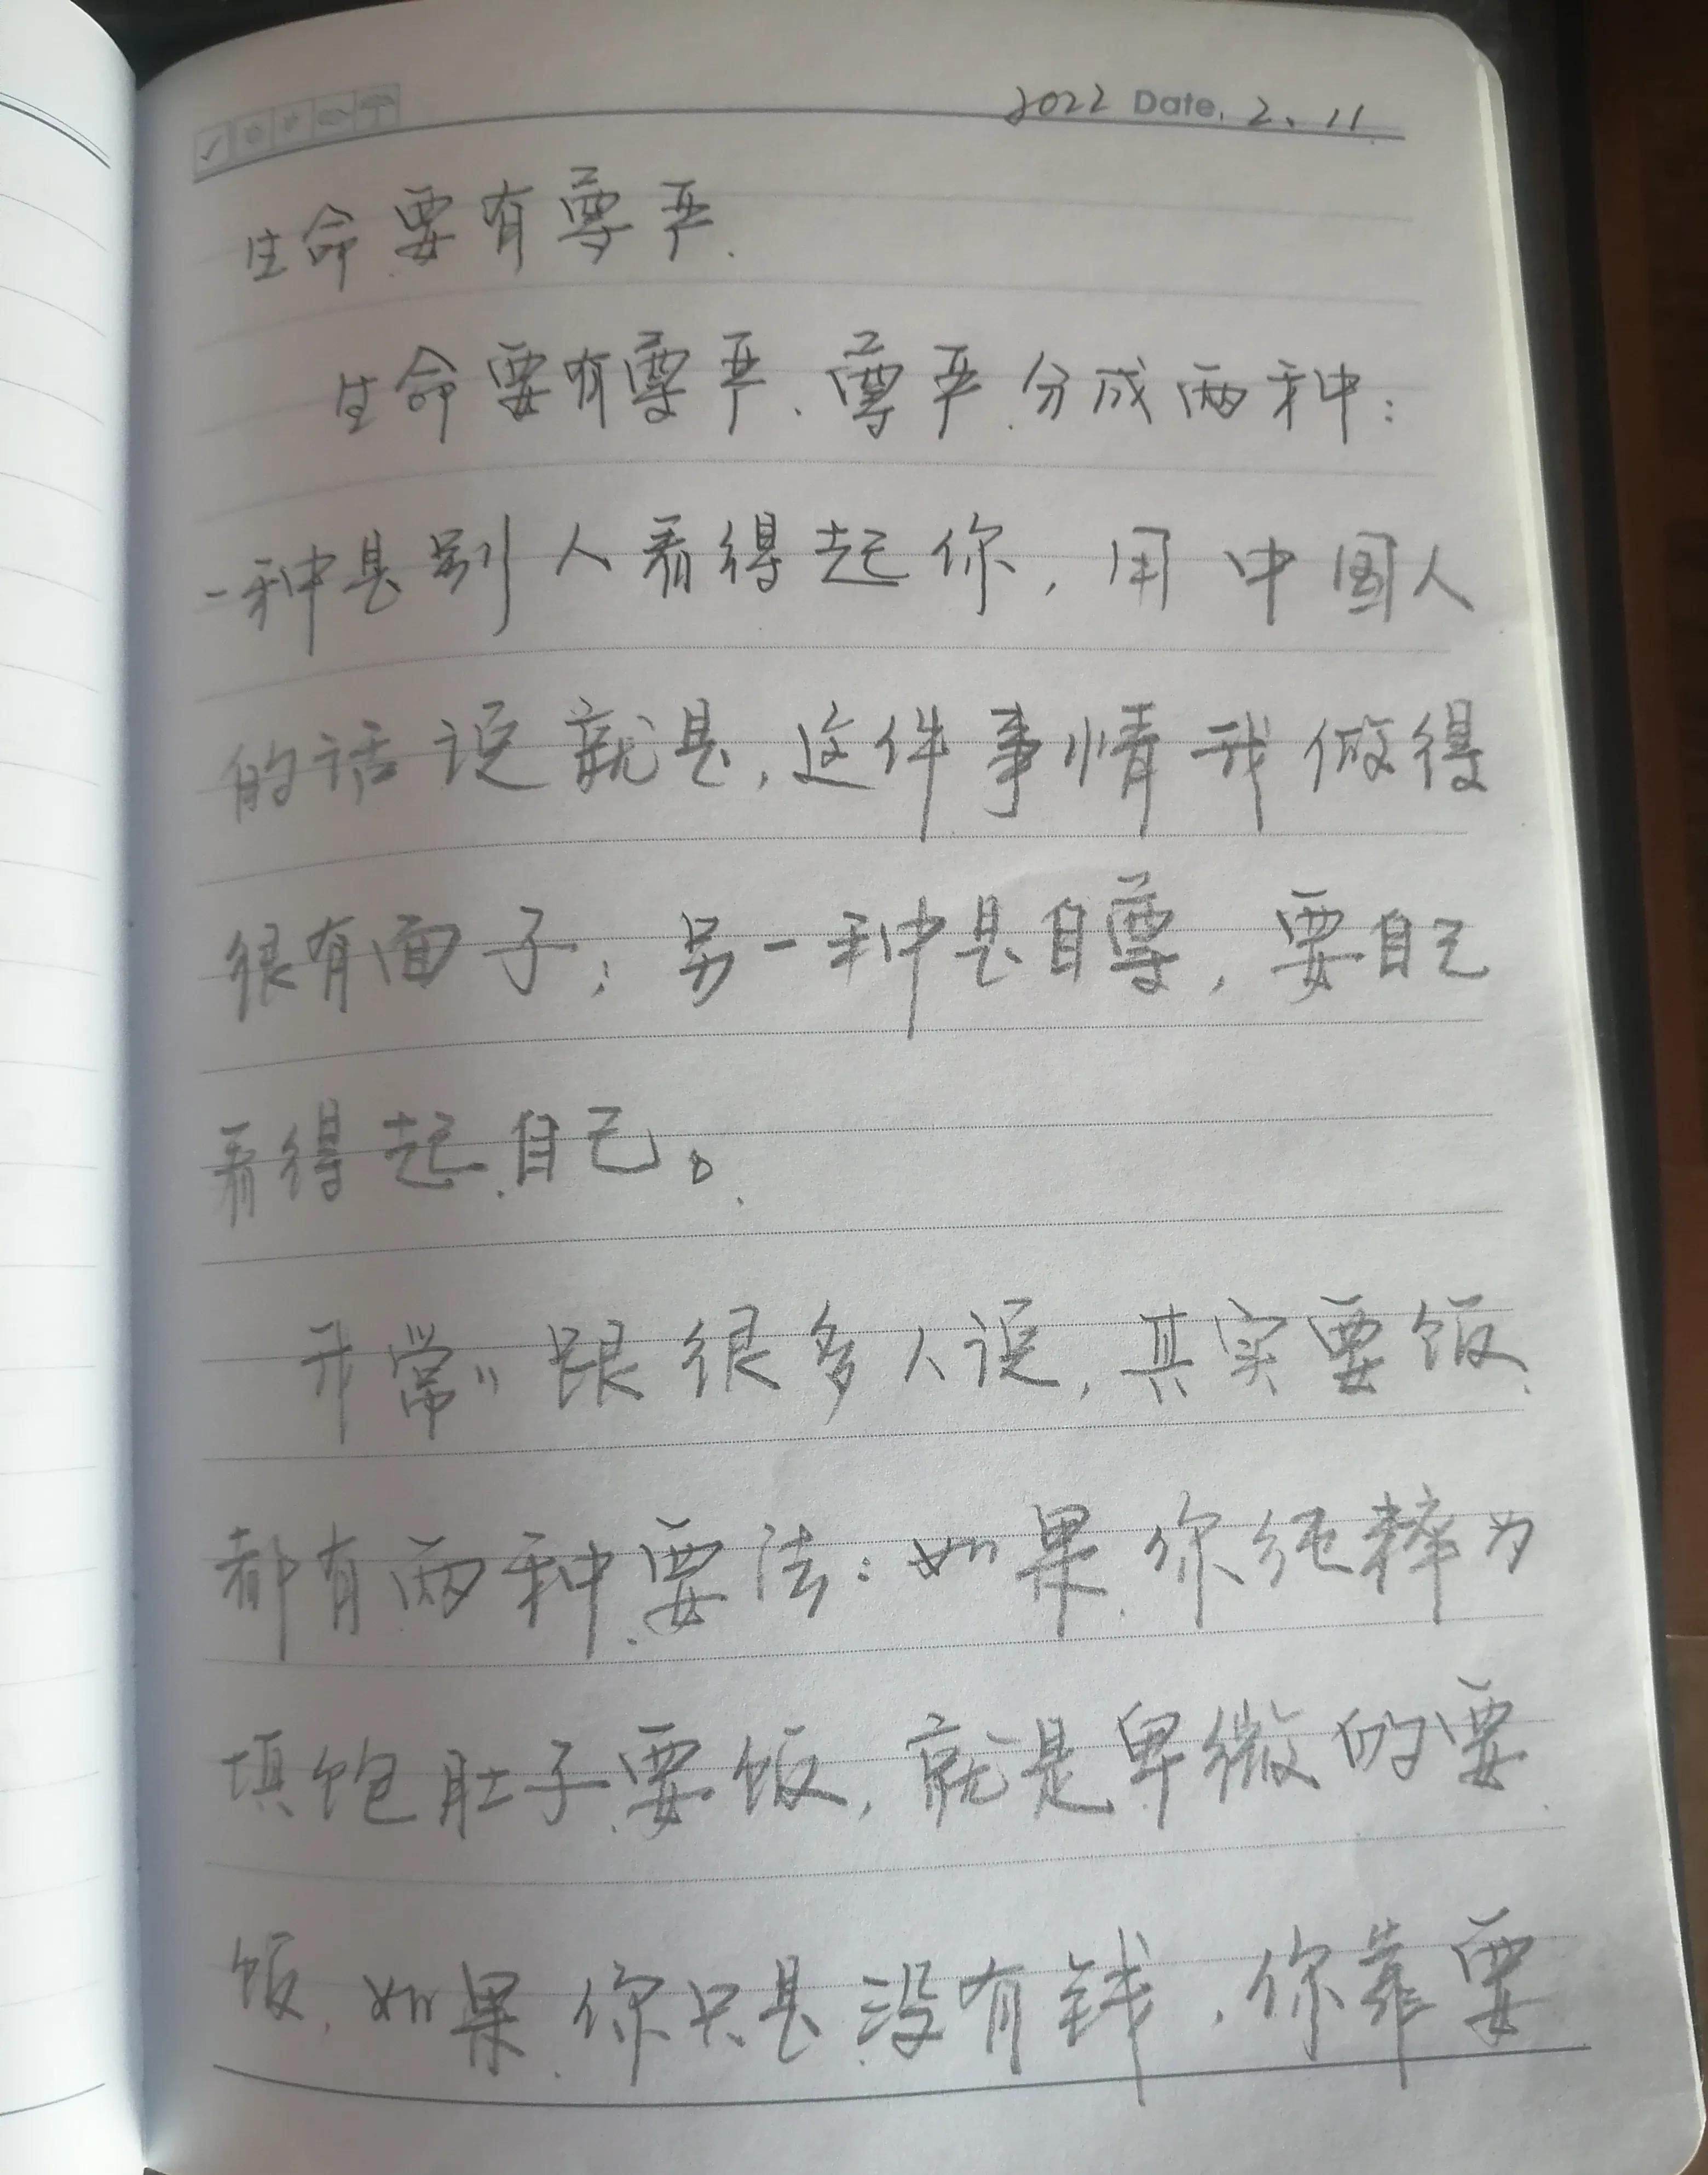 2022 Date. 2、11
生命要有尊严.
生命要有尊严、尊严分成两种:
一种是别人看得起你,用中国人
的话说就是,这件事情我做得
很有面子;另一种是自尊,要自己
看得起自己。
我常〃跟很多人说,其实要饭
都有两种要法:如果你纯粹为
填饱肚子要饭,就是卑微的要
饭.如果你只是没有钱,你靠要